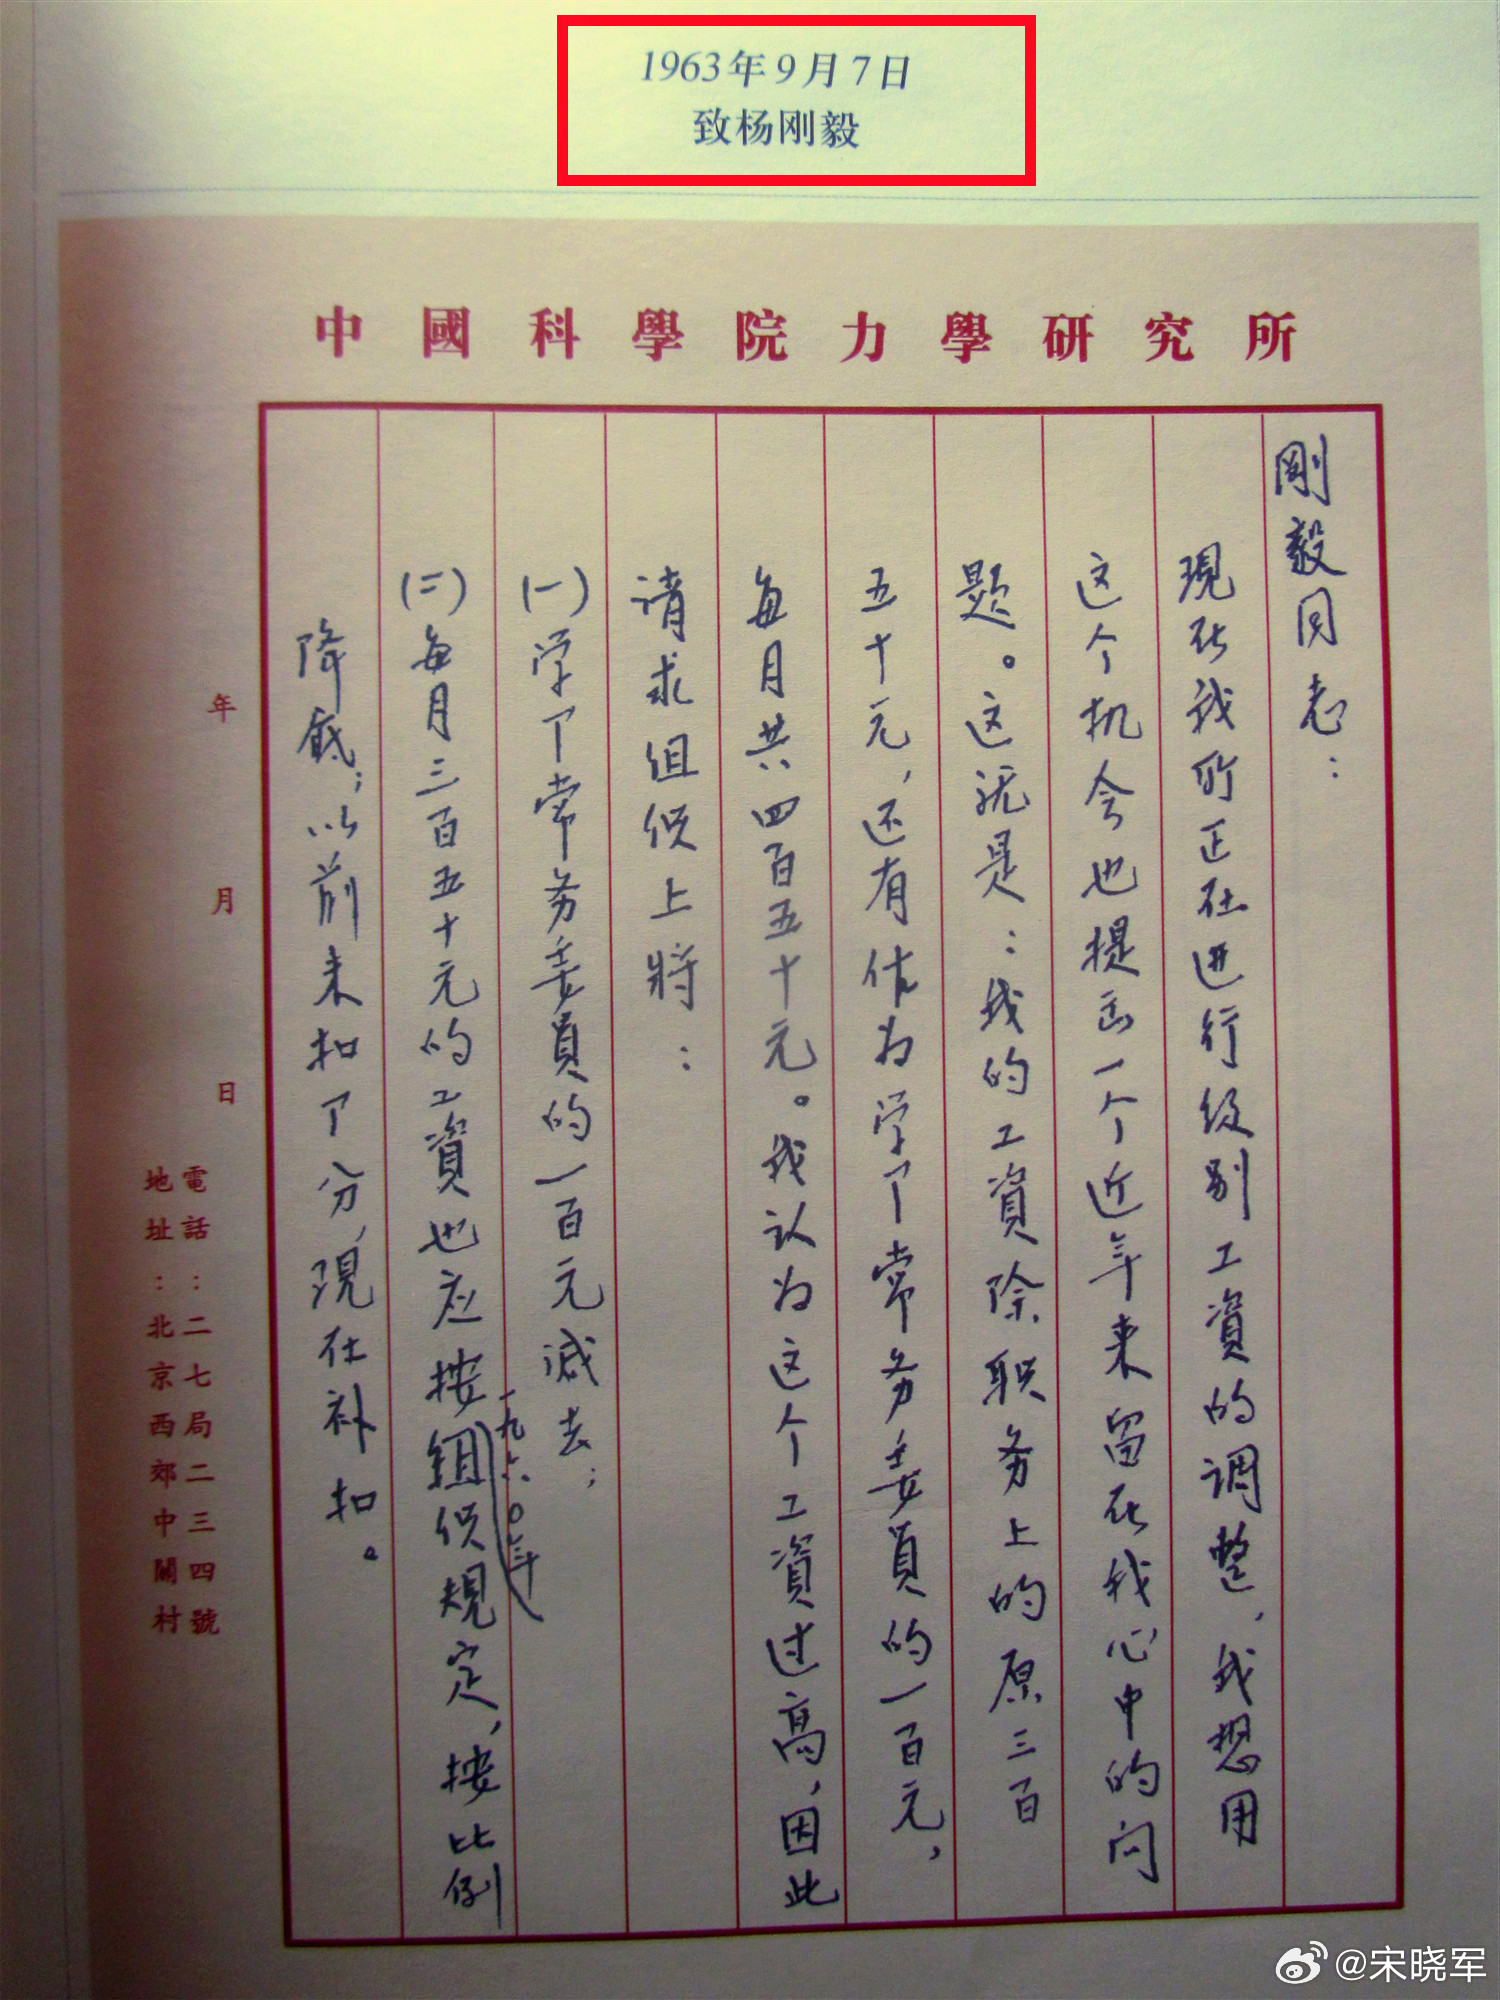 1963年9月7日
致杨刚毅
中國科學院力學研究所
剛毅同志：
現在我所正在进行级别工資的调整，我想用
这个机会也提出一个近年来留在我心中的问
题。这就是：我的工資除职务上的原三百
五十元，还有作为学了常务委員的一百元，
每月共四百五十元。我认为这个工資过高，因此
请求组织上將：
(一)学了常务委員的一百元减去；
一九六〇年
(二)每月三百五十元的工資也应按組织規定，按比例
降低；以前未扣了分，現在补扣。
年 月 日
電話：二七局二三四號
地址：北京西郊中關村
@宋晓军